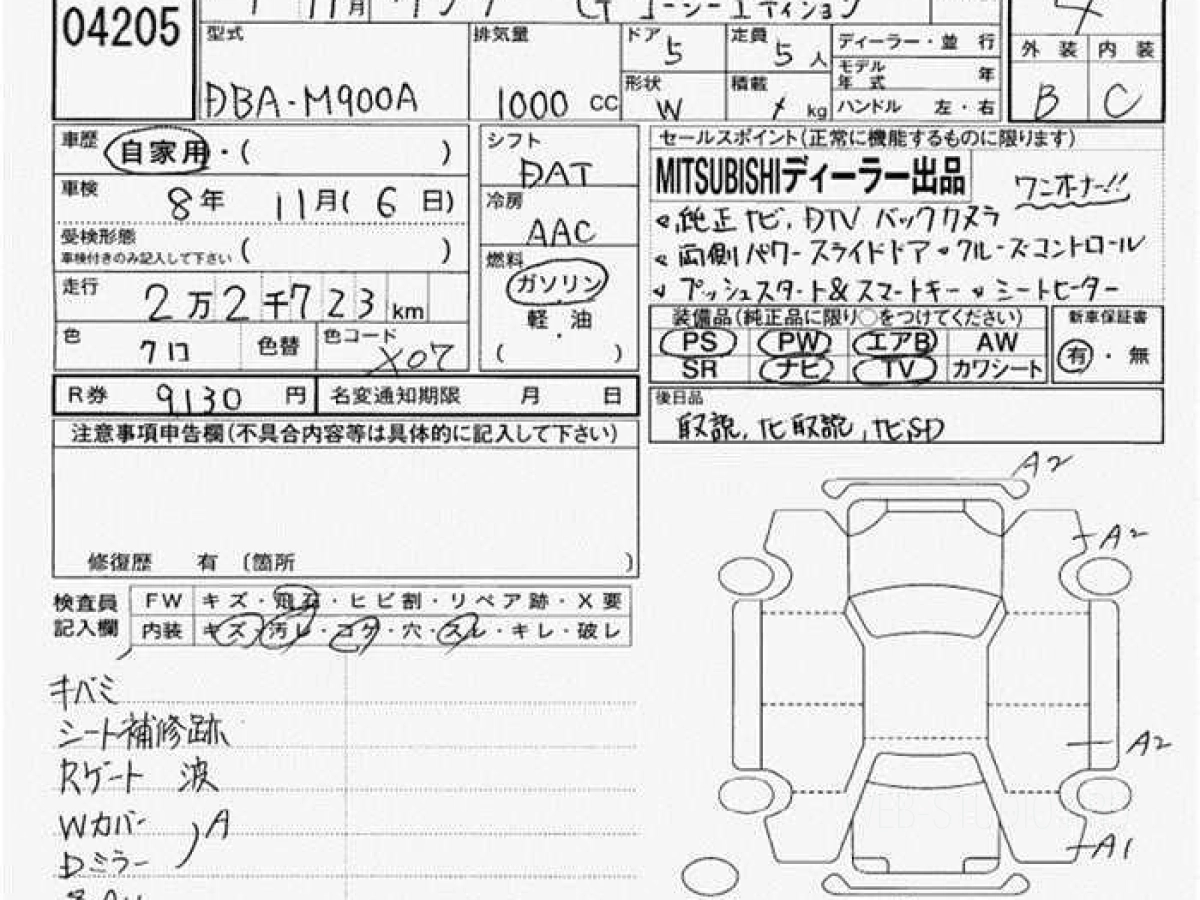 04205
11月 タンク GT コージーエディション
型式 DBA-M900A
排気量 1000 CC
ドア 5
定員 5 人
形状 W
積載 / kg
ディーラー・並行
モデル年式 年
ハンドル 左・右
4
外装 内装
B C
車歴 自家用・( )
車検 8年 11月( 6 日)
受検形態 ( )
車検付きのみ記入して下さい
走行 2万2千723km
色 クロ 色替 色コード X07
R券 9,130 円 名変通知期限 月 日
シフト DAT
冷房 AAC
燃料 ガソリン
軽・油
( )
セールスポイント(正常に機能するものに限ります)
MITSUBISHIディーラー出品 ワンオーナー!!
純正ナビ, DTV バックカメラ
両側パワースライドドア クルーズコントロール
プッシュスタート&スマートキー シートヒーター
装備品(純正品に限り○をつけてください)
PS PW エアB AW
SR ナビ TV カワシート
新車保証書
有・無
後日品
取説, ナビ取説, ナビSD
注意事項申告欄(不具合内容等は具体的に記入して下さい)
修復歴 有 〔箇所 〕
検査員記入欄
FW キズ・飛石・ヒビ割・リペア跡・X要
内装 キズ・汚レ・コゲ・穴・スレ・キレ・破レ
キバミ
シート補修跡
Rゲート 波
Wカバー
Dミラー
A
A2
A2
A2
A1